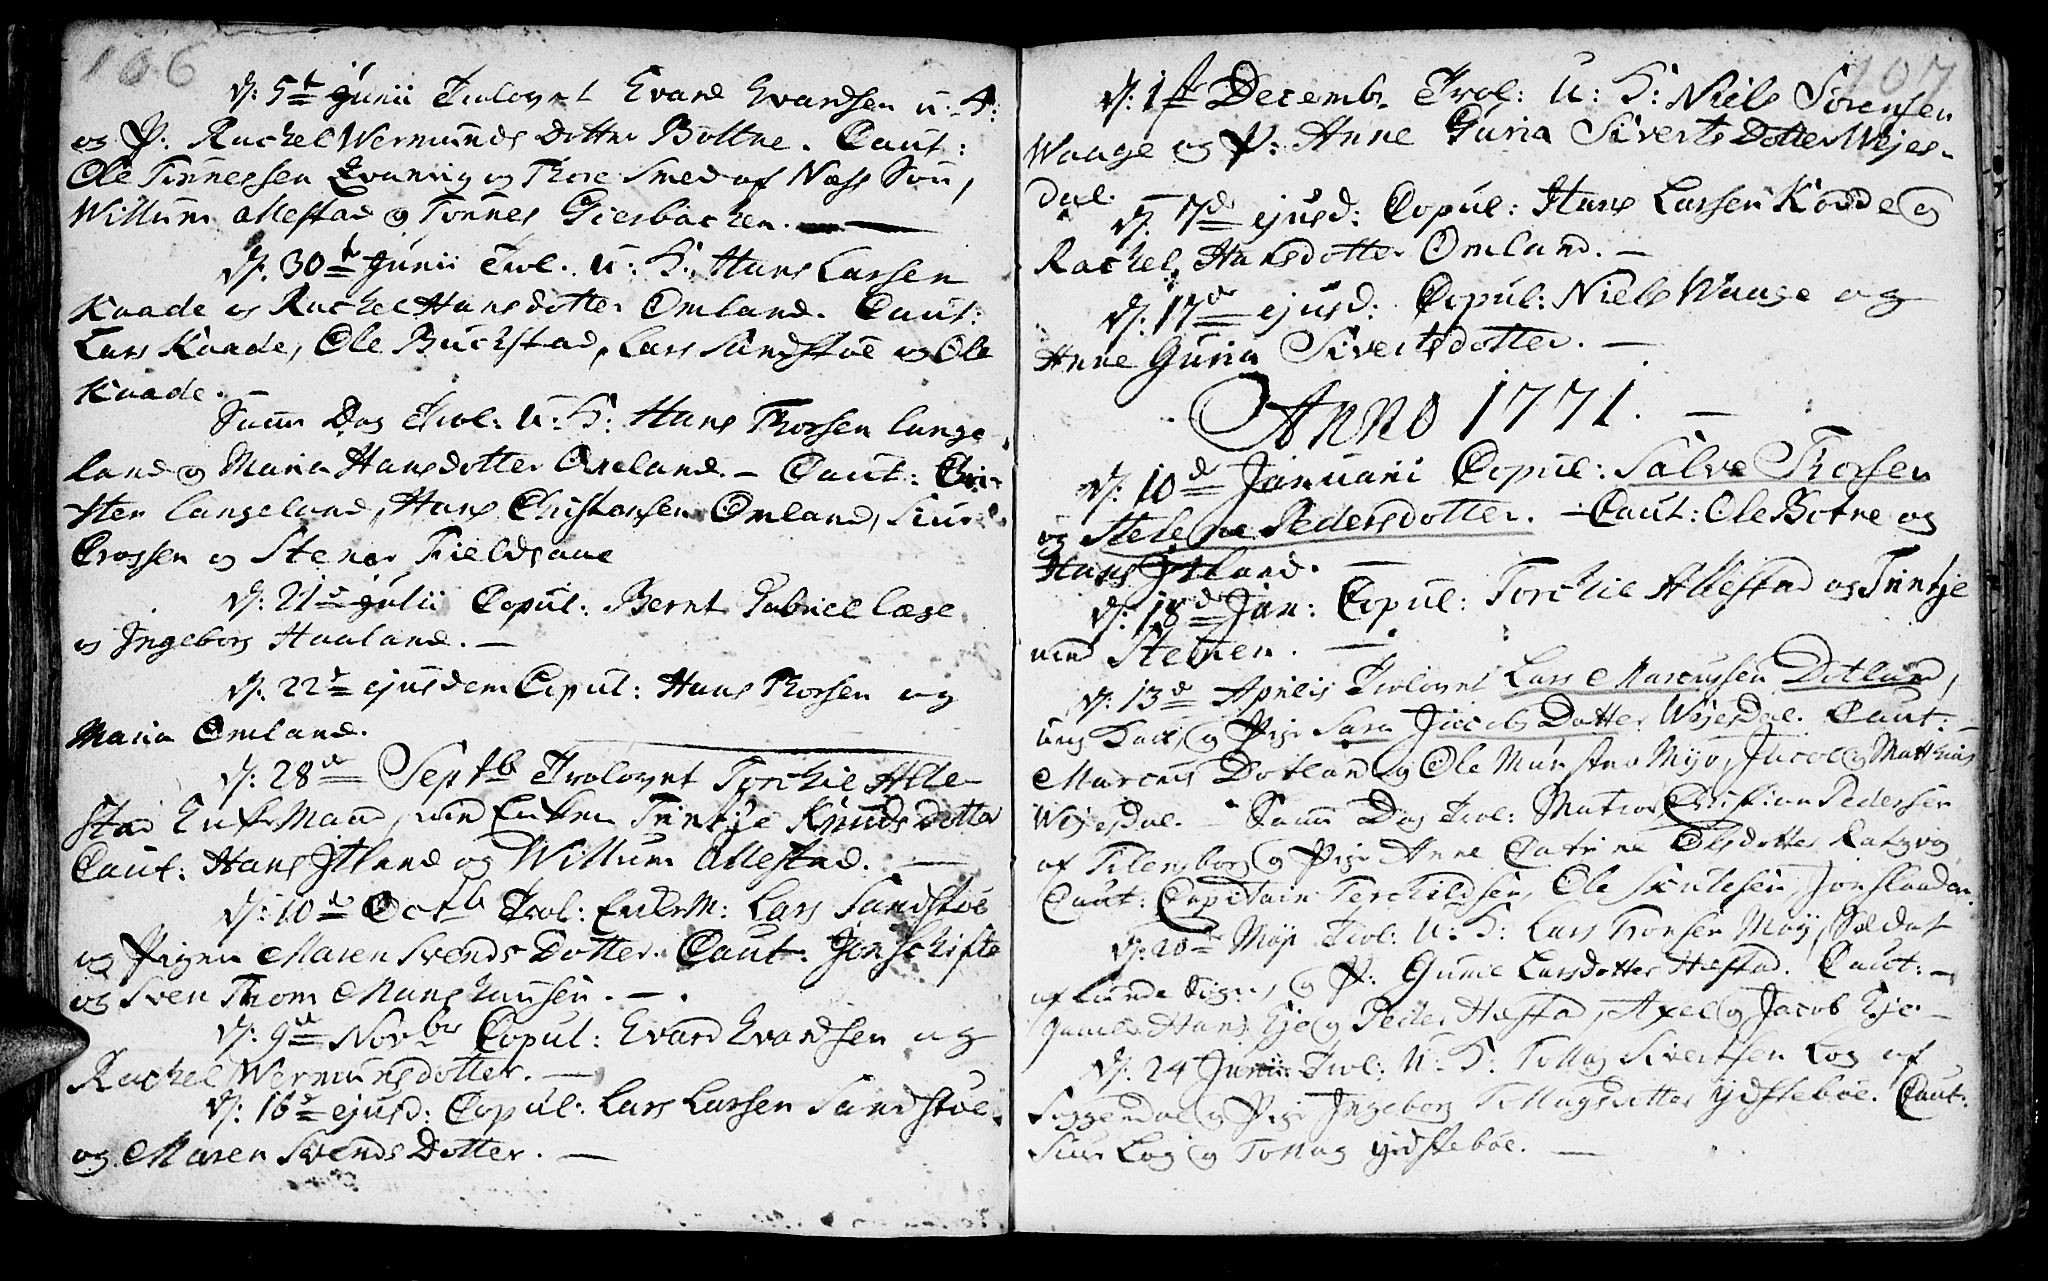 106
d: 5t Junii Trolovet Evard Evardsen u. K:
og P. Rachel Wermunds Dotter Bottne. Caut:
Ole Tønnessen og Thore Smed af Næss
Willum Allestad og Tønnes Giesbachen.
d: 30t Junii Trol. U: K: Hans Larsen
Kaade og Rachel Hansdotter Omland. Caut:
Lars Kaade, Ole Buchstad, Lars Sandstøe og Ole
Kaade.
Samm Dag Trol: U: K: Hans Thorsen Lange
land og Maria Hansdotter Omland. - Caut: Chri-
sten Langeland, Hans Christensen Omland, Siur
Crossen og Stener Fieldsaae
d: 21d Julii Copul: Bernt Gabriel Læge
og Ingeborg Haaland. -
d: 22d ejusdem Copul: Hans Thorsen og
Maria Omland.
d: 28d Septb Trolovet Torchil Alle-
stad Enke Mand, med Enken Trintje Knuds Dotter
Caut: Hans Jtland og Willum Allestad. -
d: 10de Octb Trol: Enke M: Lars Sandstøe
og Pigen Maren Svends Dotter. Caut: Jon Schifte
og Sven Thom Munghausen. -
d: 9d Novbr Copul: Evard Evardsen og
Rachel Wermunsdotter. -
d: 16d ejusd: Copul: Lars Larsen Sandstøe
og Maren Svends Dotter. -
107
d: 1ste Decembr Trol: U: K: Niels Sørensen
Waage og P: Anne Guria Siverts Dotter Wijes-
dal. -
d. 7de ejusd: Copul: Hans Larsen Kodde og
Rachel Hansdotter Omland. -
d: 17de ejusd: Copul: Niels Waage og
Anne Guria Sivertsdotter. -
Anno 1771. -
d: 10d Januarii Copul: Salve Thorsen
og Stelene Pedersdotter. - Caut: Ole Botne og
Hans Jtland. -
d: 18de Jan: Copul: Torchil Allestad og Trintje
med Stemen. -
d: 13d Aprilis Trolovet Lars Marcussen Dotland,
ung Karl, og Pige Sara Jacobs Dotter Wijesdal. Caut: -
Marcus Dotland og Ole Munstro Myr, Jacob og Matthias
Wijesdal. - Samm Dag Trol: Matros Christian Pedersen
af Fleensborg og Pige Anne Catrine Olsdotter Ratzvog
Caut: Capitain Terchildsen, Ole Jon Flaaden.
d: 20de Maji Trol: U: K: Lars Tronsen Moy, Soldat
af Lunde Sogn, og P: Gunild Larsdotter Hestad. Caut: -
Gamle Hans Eje og Peder Hestad, Axel og Jacob Eje -
d: 24 Junii Trol: U: K: Tollag Sivertsen Log af
Soggendal og Pige Ingeborg Tollagsdotter Ydstebøe. Caut:
Siur Log og Tollag Ydstebøe. -